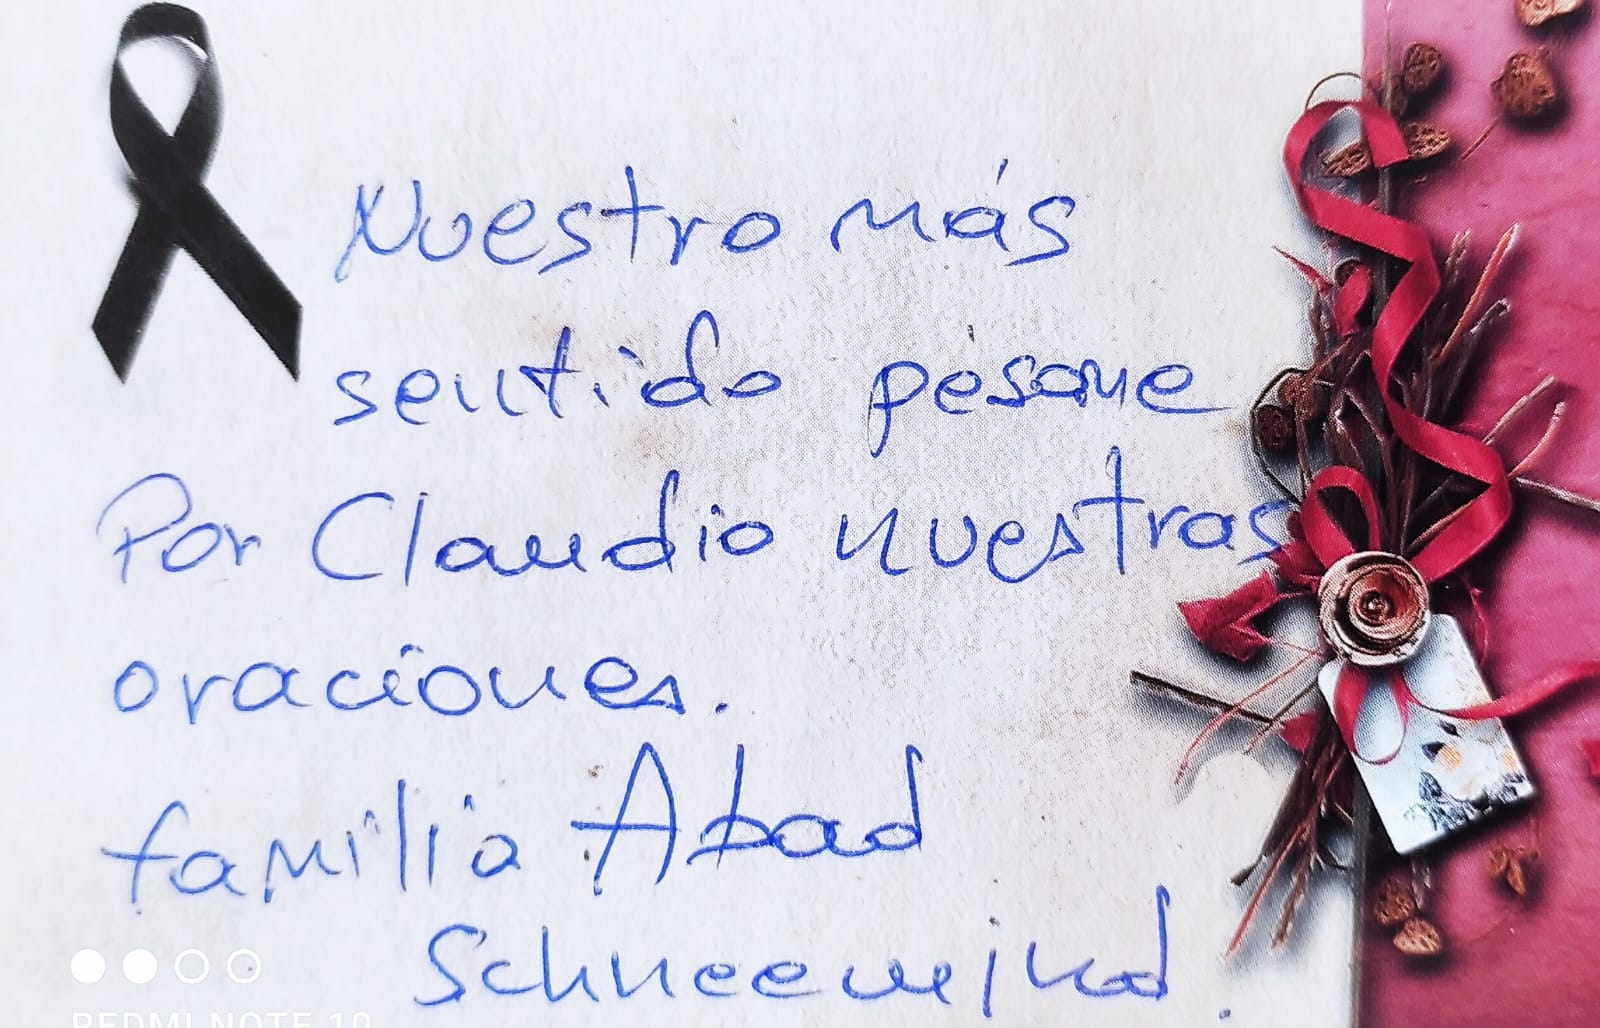 Nuestro más
sentido pésame
Por Claudio nuestras
oraciones.
familia Abad
Schneewind.
REDMI NOTE 10